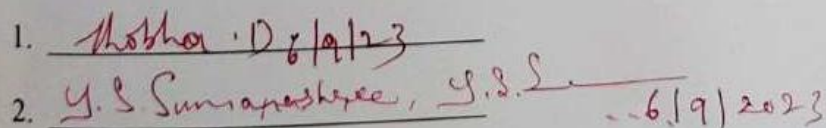 1. Shobha . D 6/9/23
2. Y. S. Sumapashree, Y.S.S. 6/9/2023